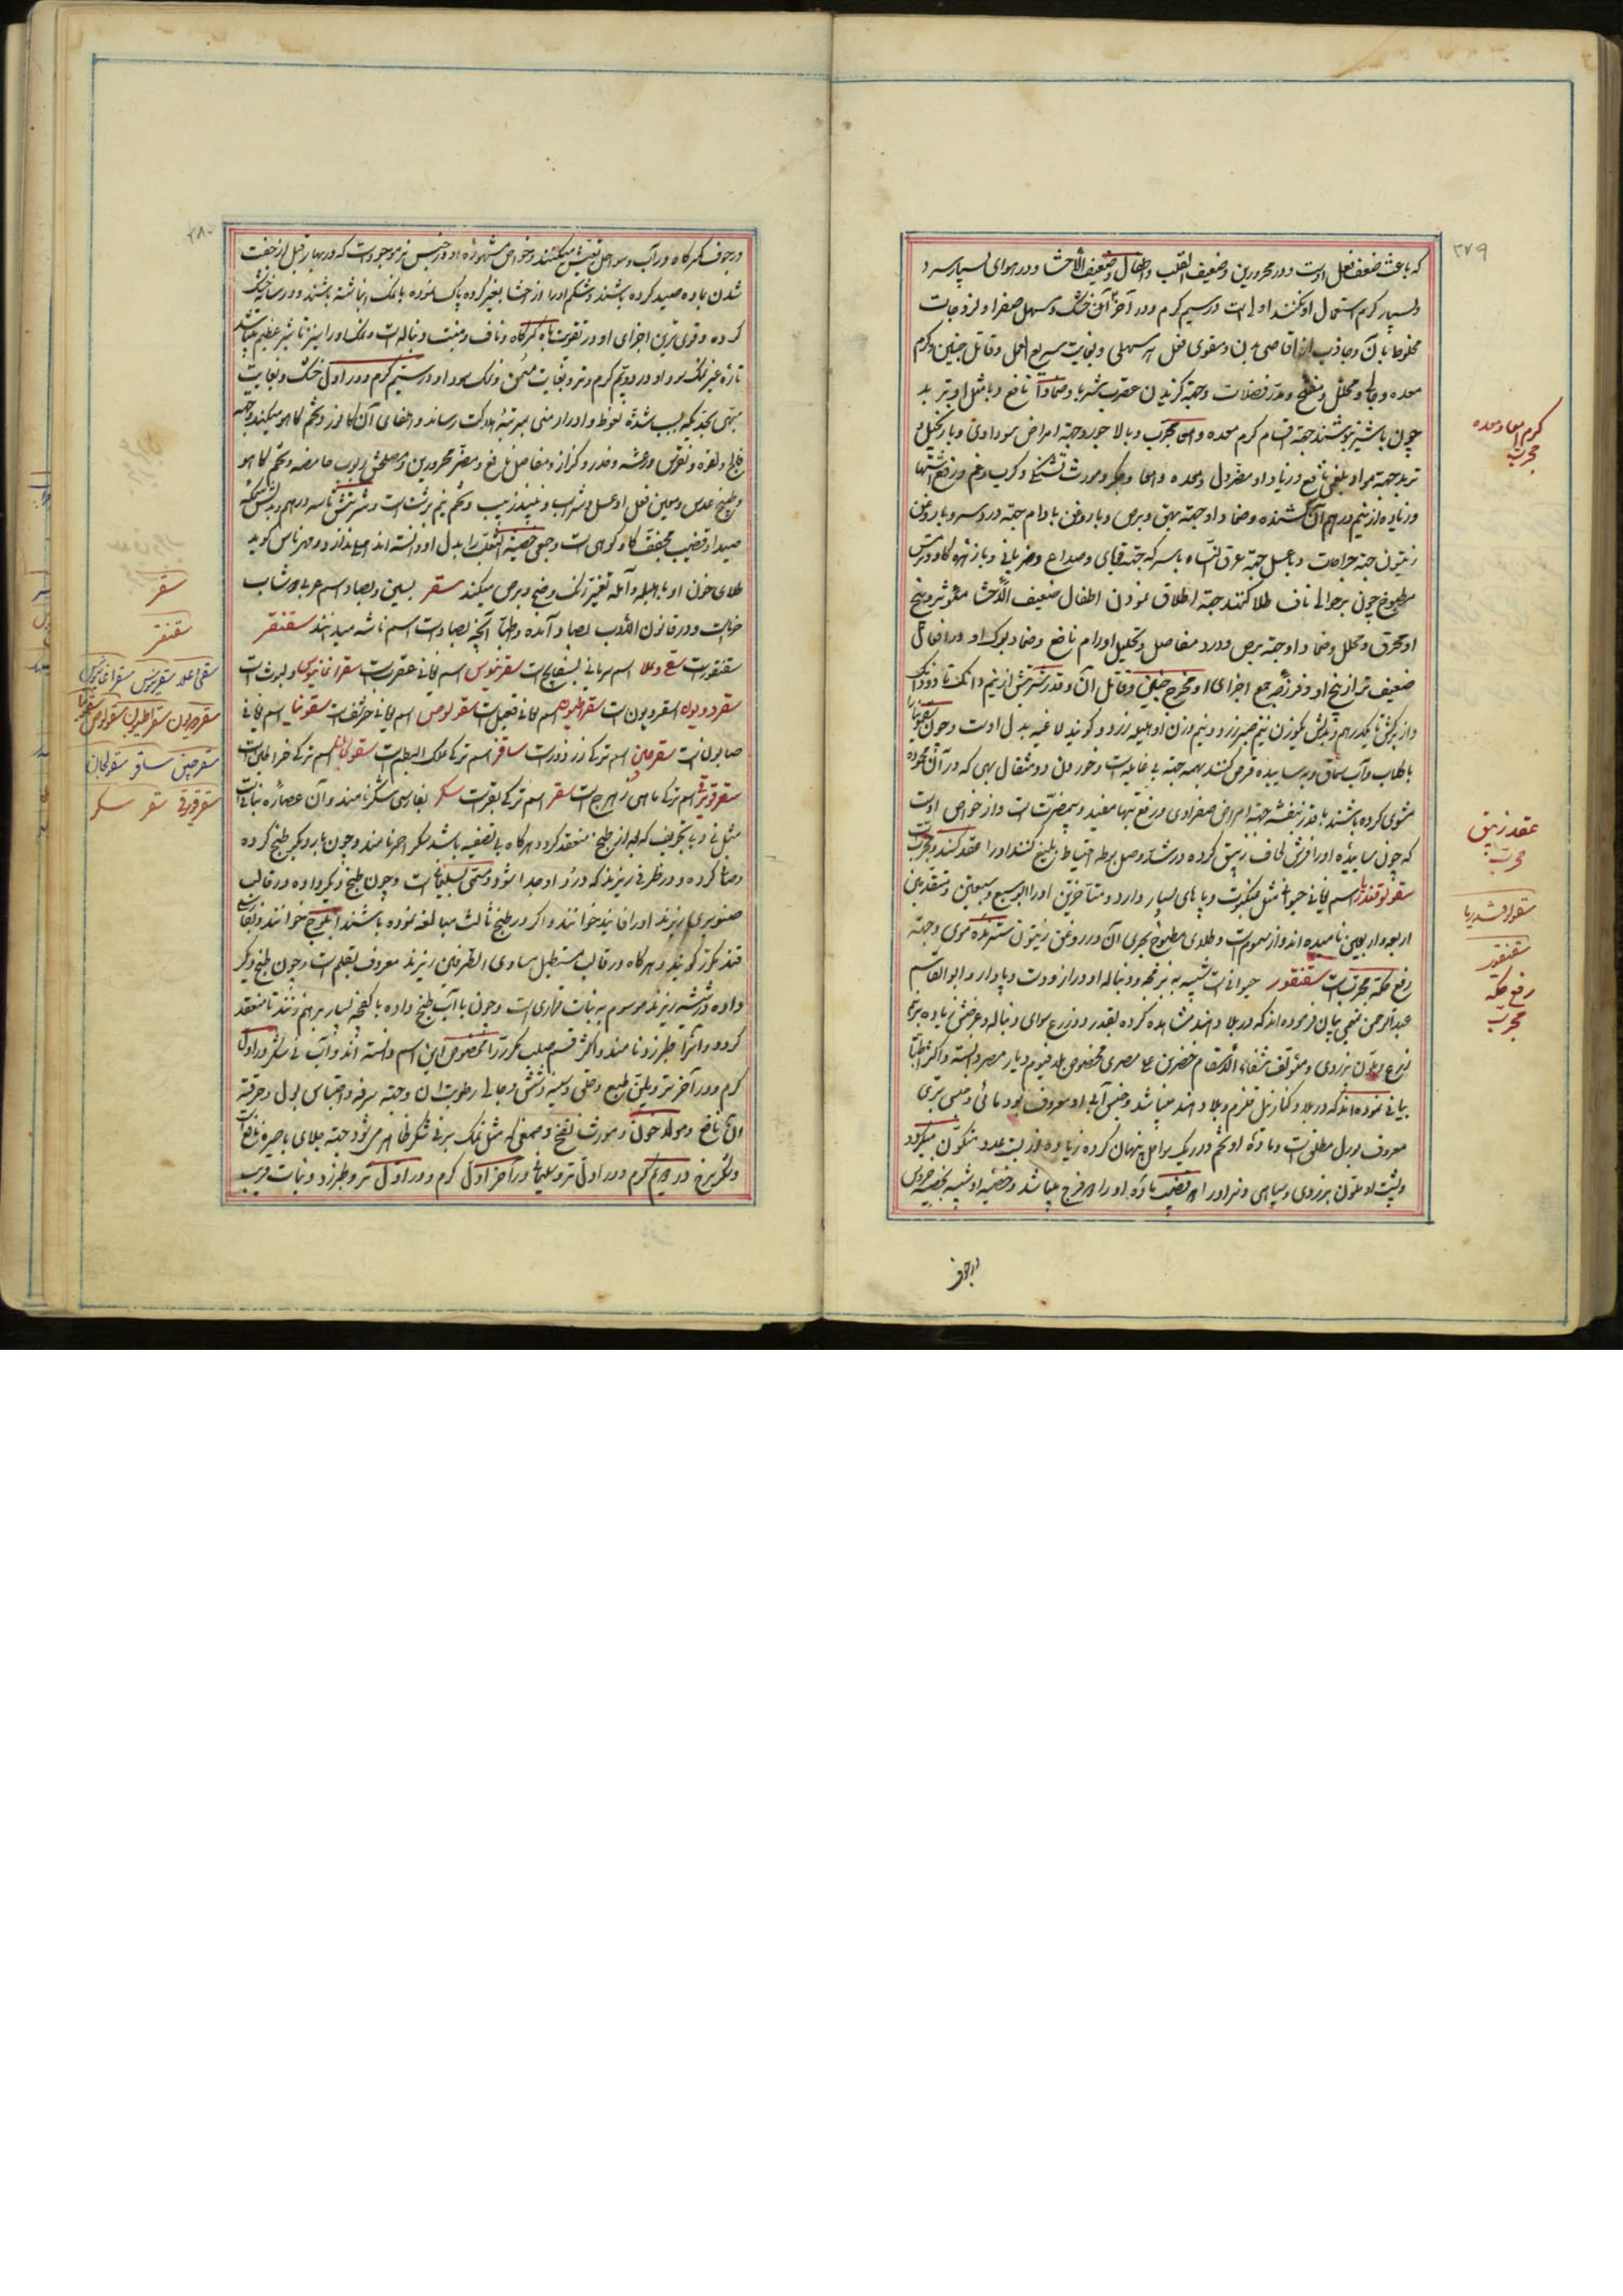 ۳۷۹
که باعث ضعف فعل اوست و در محرورین و ضعیف القلب و اطفال و ضعیف الاحشا و در هوای بسیار سرد
و بسیار گرم استعمال او نکنند اولی است در سیم گرم و در آخر آن خشک و مسهل صفرا و لزوجات
مخلوط بآن و جاذب از اقاصی بدن و مقوی فعل هر مسهلی و بغایت سریع العمل و قاتل جنین و کرم
معده و جالی و محلل و مفتح و مدر فضلات و جهة گزیدن عقرب شربا و ضمادا نافع و با مثل او تربد
چون با شیر بنوشند جهة اقسام کرم معده و امعا مجرب و با لاجورد جهة امراض سوداوی و با زنجبیل و
تربد جهة مواد بلغمی نافع و زیاد او مضر دل و معده و امعا و جگر و مورث تشنگی و کرب و غم و رفع اشتها
و زیاده از نیم درهم آن کشنده و ضماد او جهة بهق و برص و با روغن بادام جهة درد سر و با روغن
زیتون جهة جراحات و با عسل جهة عرق النساء با سرکه جهة قوبای و صداع و ضربانی و با زهره گاو و ترس
مطبوخ چون بر حوالی ناف طلا کنند جهة اطلاق نمودن اطفال ضعیف الاحشا مؤثر و بیخ
او محرق و محلل و ضماد او جهة برص و درد مفاصل و تحلیل اورام نافع و ضماد برک او در افعال
ضعیف تر از بیخ او و فرزجه جمیع اجزای او مخرج جنین و قاتل آن و قدر شربتش از نیم دانک تا دو دانک
و از برکش تا یکدرهم و بدلش بوزن نیم صبر زرد و نیم وزن او هلیله زرد و گویند لاغیه بدل اوست و چون سقمونیا را
با گلاب و آب سماق و به سائیده قرص کنند بهمه جهة بی غایله است و خوردن دو مثقال بهی که در آن محموده
مشوی کرده باشند با قدری بنفشه جهة امراض صفراوی و رفع تبها مفید و بیمضرت است و از خواص اوست
که چون سائیده او را فرش لحاف زیبق کرده در شد وصل بوطه احتیاط بلیغ کنند او را عقد کند و مجرب است
سقولوقندریا اسم یونانی حیوانی مثل عنکبوت و پاهای بسیار دارد و متأخرین او را ابو سبع و سبعین و متقدمین
اربعة و اربعین نامیده اند و از سموم است و طلای مطبوخ بحری آن در روغن زیتون سترنده موی و جهة
رفع حکه مجرب است سقنقور حیوانی است شبیه به بزمجه و دنباله او دراز و دست و پا دارد و ابو القاسم
عبد الرحمن تمیمی بیان فرموده اند که در بلاد هند مشاهده کرده بقدر دو ذرع سوای دنباله و عرضش زیاده بر نیم
ذرع و بلون بزردی و مؤلف شفاء الاسقام خضر بن علی مصری مخصوص بلد فیوم دیار مصر دانسته و اکثر اطبا
بیانی نموده اند که در بلاد کنار نیل قلزم و بلاد هند میباشد و جنس آبی او معروف بود مائی و جنس بری
معروف بورل مطلق است و ماده او تخم در ریک سواحل پنهان کرده زیاده از بیست عدد متکون میگردد
و پشت او ملون بزردی و سیاهی و نر او را دو قضیب ماده او را دو فرج میباشد و خصیه او شبیه بخصیه خروس
در جوف
کرم امعا و معده
مجرب
عقد زیبق
مجرب
سقولوقندریا
سقنقور
رفع حکه
مجرب
۳۸۰
در جوف کمرگاه در آب و سواحل تعیش میکنند و خواص مشهوره او در جنس نر موجود است که در بهار قبل از جفت
شدن با ماده صید کرده باشند و شکم او را از احشا بغیر گرده پاک نموده با نمک انباشته باشند و در سایه خشک
کرده و قوی ترین اجزای او در تقویت باه کمرگاه و ناف و منبت دنباله است و نمک او را نیز تاثیر عظیم میباشد
تازه غیر نمک سود او در دویم گرم و تر و بغایت مسمن و نمک سود او در سیم گرم و در اول خشک و بغایت
مبهی بحدیکه بسبب شدة نعوظ و ادرار منی بمرتبه هلاکت رساند و اطفای آن کافور و تخم کاهو میکند و جهة
فالج و لقوه و نقرس و رعشه و خدر و کزاز و مفاصل نافع و مضر محرورین و مصلحش ربوب حامضه و تخم کاهو
و طبیخ عدس و معین فعل او عسل و شراب و نبیذ زبیب و تخم نیم برشت است و شربتش تا سه درهم و بدلش سمکه
صیدا و قضیب مجفف گاو کوهی است و جمعی خصیة الثعلب را بدل او دانسته اند
طلای خون او با هلیله و آمله تغییر رنگ وضح و برص میکند سقر بسین و بصاد اسم عربی دوشاب
خرماست و در قانون الادب بصاد آمده و طبا آنچه بصاد است اسم ناشه میدانند سقنقر
سقنقور است سقی و علا اسم سریانی بسفایج است سقرنیوس اسم یونانی عقرب است سقراغانیوس و لبوث است
سقردیون اسقردیون است سقراطیون اسم یونانی است سقولوس اسم یونانی خرشف است سقونیا اسم یونانی
صابون است سقرجین اسم ترکی زرزور است ساقز اسم ترکی علک البطم است سقولجان اسم ترکی خراطین است
سقرقویرقی اسم ترکی ماهی زهرج است سقر اسم ترکی بقر است سکر بفارسی شکر نامند و آن عصاره نباتی است
مثل نی و با تجویف که بعد از طبخ منعقد گردد هرگاه بی تصفیه باشد سکر احمر نامند و چون بار دیگر طبخ کرده
و صاف کرده و در ظرفی ریزند که درد او جدا شود مسمی بسلیمانی است و چون طبخ دیگر داده در قالب
صنوبری ریزند او را فانید خوانند و اگر در طبخ ثالث مبالغه نموده باشند ابلوج خوانند و بفارسی
قند مکرر گویند و هرگاه در قالب مستطیل مساوی الطرفین ریزند معروف بقلم است و چون طبخ دیگر
داده در شیشه ریزند موسوم به نبات قزاری است و چون با آب طبخ داده با کفچه بسیار برهم زنند تا منعقد
گردد و آنرا طبرزد نامند و اکثر قسم صلب مکرر را مخصوص این اسم دانسته اند و آب نی شکر در اول
گرم و در آخر تر و ملین طبع و حلق و سینه و شش و جالی رطوبت آن و جهة سرفه و احتباس بول و حرقة
آن نافع و مولد خون و مورث نفخ و صمغی که مثل نمک بر نی شکر ظاهر میشود جهة جلای باصره نافع است
و شکر سرخ در دویم گرم و در اول تر و سلیمانی در آخر اول گرم و در اول تر و طبرزد و نبات قریب
سقر
سقنقر
سقی و علا سقرنیوس سقراغانیوس
سقردیون سقراطیون سقولوس سقونیا
سقرجین ساقز سقولجان
سقرقویرقی سقر سکر